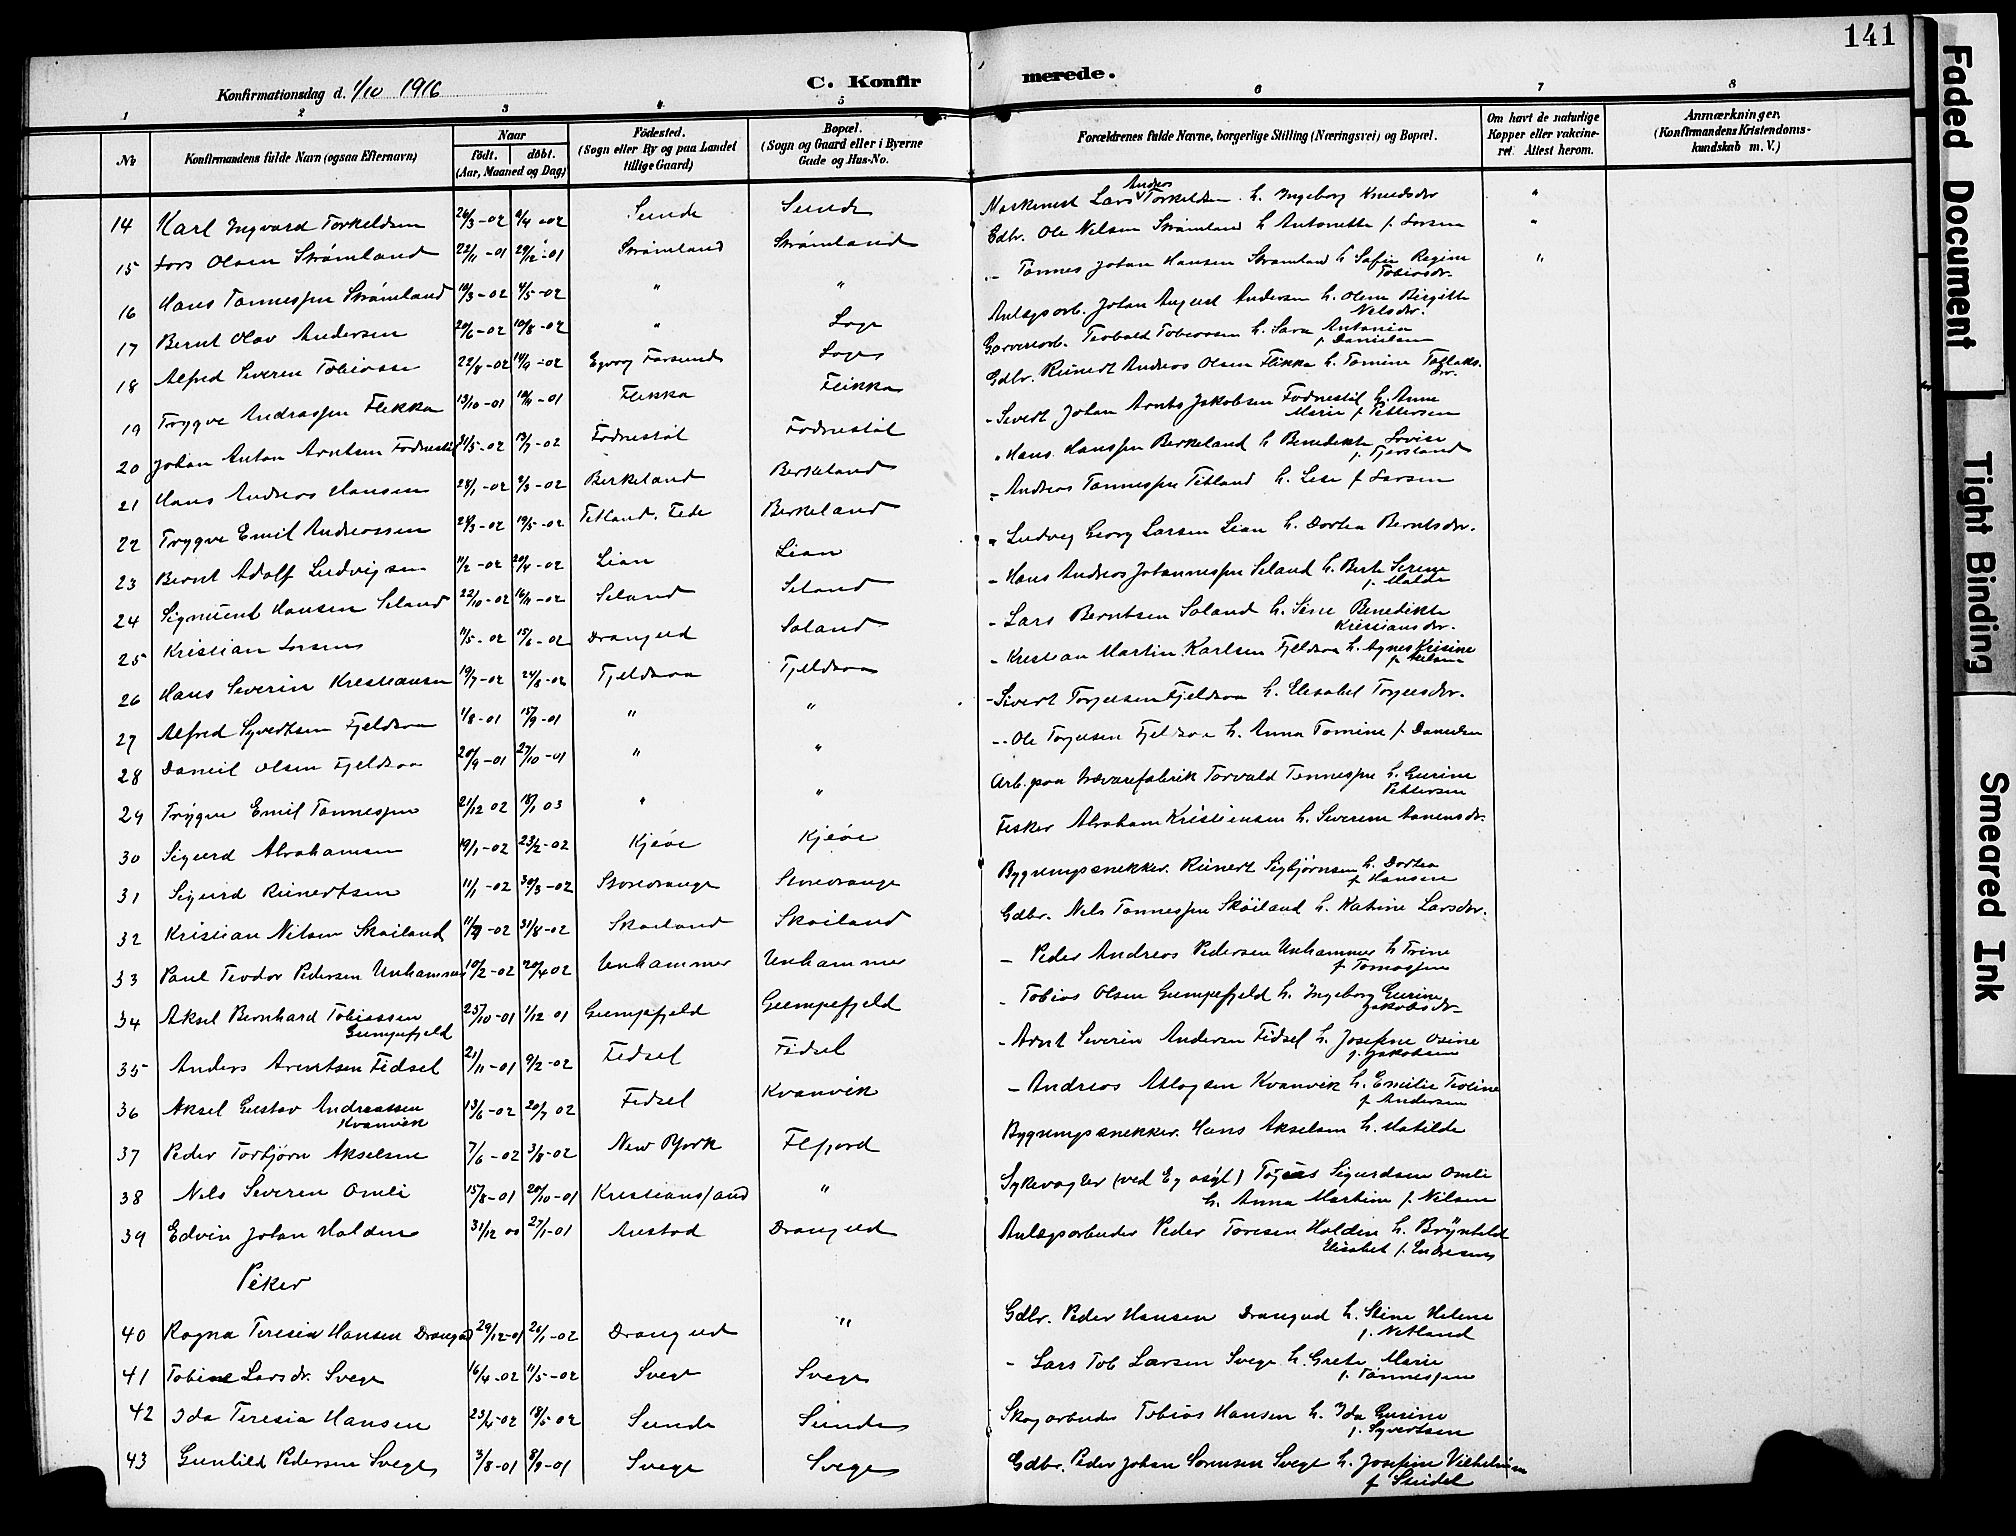 141
Konfirmationsdag d. 1/10 1916
C. Konfirmerede.
1 2 3 4 5 6 7 8
No
Konfirmandens fulde Navn (ogsaa Efternavn)
Naar
födt. döbt.
(Aar, Maaned og Dag)
Födested.
(Sogn eller By og paa Landet tillige Gaard)
Bopæl.
(Sogn og Gaard eller i Byerne Gade og Hus-No.
Forældrenes fulde Navne, borgerlige Stilling (Næringsvei) og Bopæl.
Om havt de naturlige Kopper eller vakcineret. Attest herom.
Anmærkninger.
(Konfirmandens Kristendomskundskab m. V.)
14 Karl Ingvard Torkeldsen 26/3-02 6/4-02 Sunde Sunde Lars Andreas Torkeldsen h. Ingeborg Knudsdr "
15 Lars Olsen Strømland 22/11-01 29/12-01 Strømland Strømland Gdbr. Ole Nilsen Strømland h Antonette f. Larsen "
16 Hans Tønnessen Strømland 10/3-02 4/5-02 " " - Tønnes Johan Hansen Strømland h Sofie Regine Tobiasdr. "
17 Bernt Olav Andersen 20/6-02 10/8-02 " Loge Anlægsarb. Johan August Andersen h. Olene Birgitte Nilsdr.
18 Alfred Severin Tobiassen 22/8-02 14/9-02 Farsund Loge Garveriarb. Teobald Tobiassen h. Sara Antonia f. Danielsen
19 Trygve Andreassen Flikka 13/10-01 10/11-01 Flikka Flikka Gdbr. Reinert Andreas Olsen Flikka h. Tomine Tollaksdr.
20 Johan Anton Arntsen Fodnestøl 31/5-02 13/7-02 Fodnestøl Fodnestøl - Sivert Johan Arnt Jakobsen Fodnestøl h. Anne Marie f. Pettersen
21 Hans Andreas Hansen 28/1-02 2/3-02 Birkeland Berkeland " Hans Hanssen Berkeland h Benedikte Lovise f. Fjersland
22 Trygve Emil Andreassen 24/3-02 19/5-02 Tetland. Fede Berkeland - Andreas Tønnessen Tetland h. Lise f Larsen
23 Bernt Adolf Ludvigsen 11/2-02 20/4-02 Lian Lian " Ludvig Georg Larsen Lian h. Dortea Berntsdr.
24 Sigmund Hansen Seland 22/10-02 16/11-02 Seland Seland - Hans Andreas Johannessen Seland h. Berte Serine f. Molde
25 Kristian Larsen 11/5-02 15/6-02 Drangeid Saland - Lars Berntsen Saland h. Sine Benedikte Kristiansdr.
26 Hans Severin Kristiansen 19/7-02 24/8-02 Fjeldsaa Fjeldsaa - Kristian Martin Karlsen Fjeldsaa h. Agnes Krisine f. Nilsen
27 Alfred Syvertsen Fjeldsaa 1/8-01 15/9-01 " " - Sivert Torjusen Fjeldsaa h. Elisabet Torjusdr.
28 Daniel Olsen Fjeldsaa 20/9-01 27/10-01 " " - Ole Torjusen Fjeldsaa h. Anna Tomine f. Danielsen
29 Trygve Emil Tønnessen 21/12 02 18/1 03 " " Arb. paa Trævarefabrik Torvald Tønnessen h. Gurine Pettersen
30 Sigurd Abrahamsen 19/1-02 23/2-02 Kjeøe Kjeøe Fisker Abraham Kristensen h. Severine Aanensdr.
31 Sigurd Reinertsen 11/1-02 30/3-02 Storeorange Storeorange Bygningssnekker. Reinert Sigbjørnsen h. Dortea f. Hansen
32 Kristian Nilsen Skøiland 11/7-02 31/8-02 Skøiland Skøiland Gdbr. Nils Tønnessen Skøiland h. Katrine Larsdr.
33 Paul Teodor Pedersen Unhammer 10/2-02 20/4 02 Unhammer Unhammer - Peder Andreas Pedersen Unhammer h Trine f Tomassen
34 Aksel Bernhard Tobiassen Gumpefjeld 25/10-01 1/12 01 Gumpefjeld Gumpefjeld - Tobias Olsen Gumpefjeld h. Ingeborg Gurine Jakobsdr
35 Anders Arentsen Fidsel 21/11-01 9/2-02 Fidsel Fidsel - Arnt Severin Andersen Fidsel h. Josefine Osine f. Jakobsen
36 Aksel Gustav Andreassen Kvanvik 13/6-02 20/7 02 Fidsel Kvanvik - Andreas Atlogsen Kvanvik h. Emilie Teoline f. Andersen
37 Peder Torbjørn Akselsen 7/6-02 3/8-02 New York Flfjord Bygningssnekker. Hans Akselsen h. Matilde
38 Nils Severin Omli 15/8-01 20/10-01 Kristianssand " Sykevogter (ved Eg asyl) Sigurdsen Omli h. Anna Martine f. Nilsen
39 Edvin Johan Halden 31/12 00 27/1-01 Austad Drangeid Anlægsarbeider Peder Toresen Halden h. Brynhild Elisabet f. Endresen
Piker
40 Ragna Teresia Hansen Drangeid 29/12-01 26/1-02 Drangeid " Gdbr. Peder Hansen Drangeid h. Stine Helene f. Netland
41 Tobine Larsdr. Svege 16/4-02 11/5-02 Svege Svege - Lars Tob Larsen Svege h. Grete Marie f. Tønnessen
42 Ida Teresia Hansen 23/4-02 18/5-02 Sunde Sunde Skogarbeider Tobias Hansen h. Ida Gurine f. Syvertsen
43 Gunhild Pedersen Svege 3/8-01 8/9-01 Svege Svege Gdbr. Peder Johan Sørensen Svege h. Josefine Vilhelmine f Steidel
Faded Document
Tight Binding
Smeared Ink